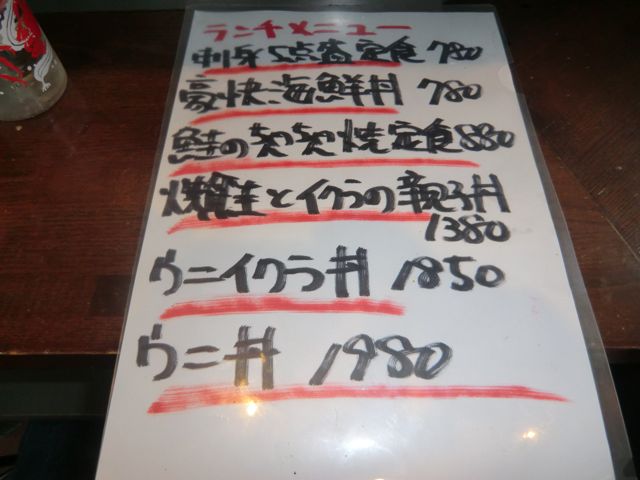 ランチメニュー
刺身5点盛定食 780
豪快海鮮丼 780
鮭のちゃんちゃん焼定食 880
焼鮭とイクラの親子丼
1380
ウニイクラ丼 1850
ウニ丼 1980